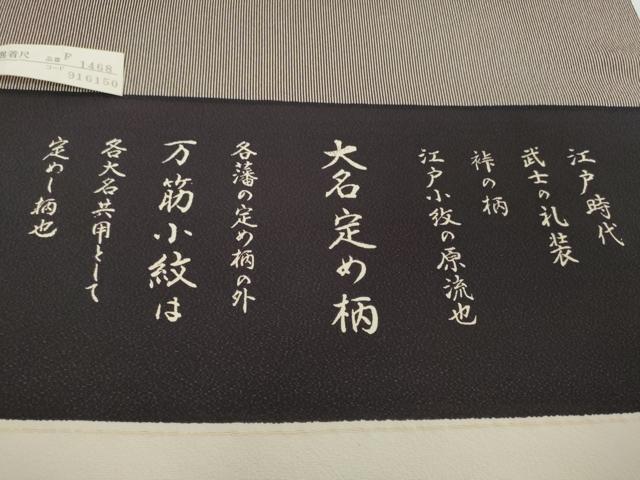 選着尺 品番 F 1468
コード 916150
江戸時代
武士の礼装
裃の柄
江戸小紋の原流也
大名定め柄
各藩の定め柄の外
万筋小紋は
各大名共用として
定めし柄也